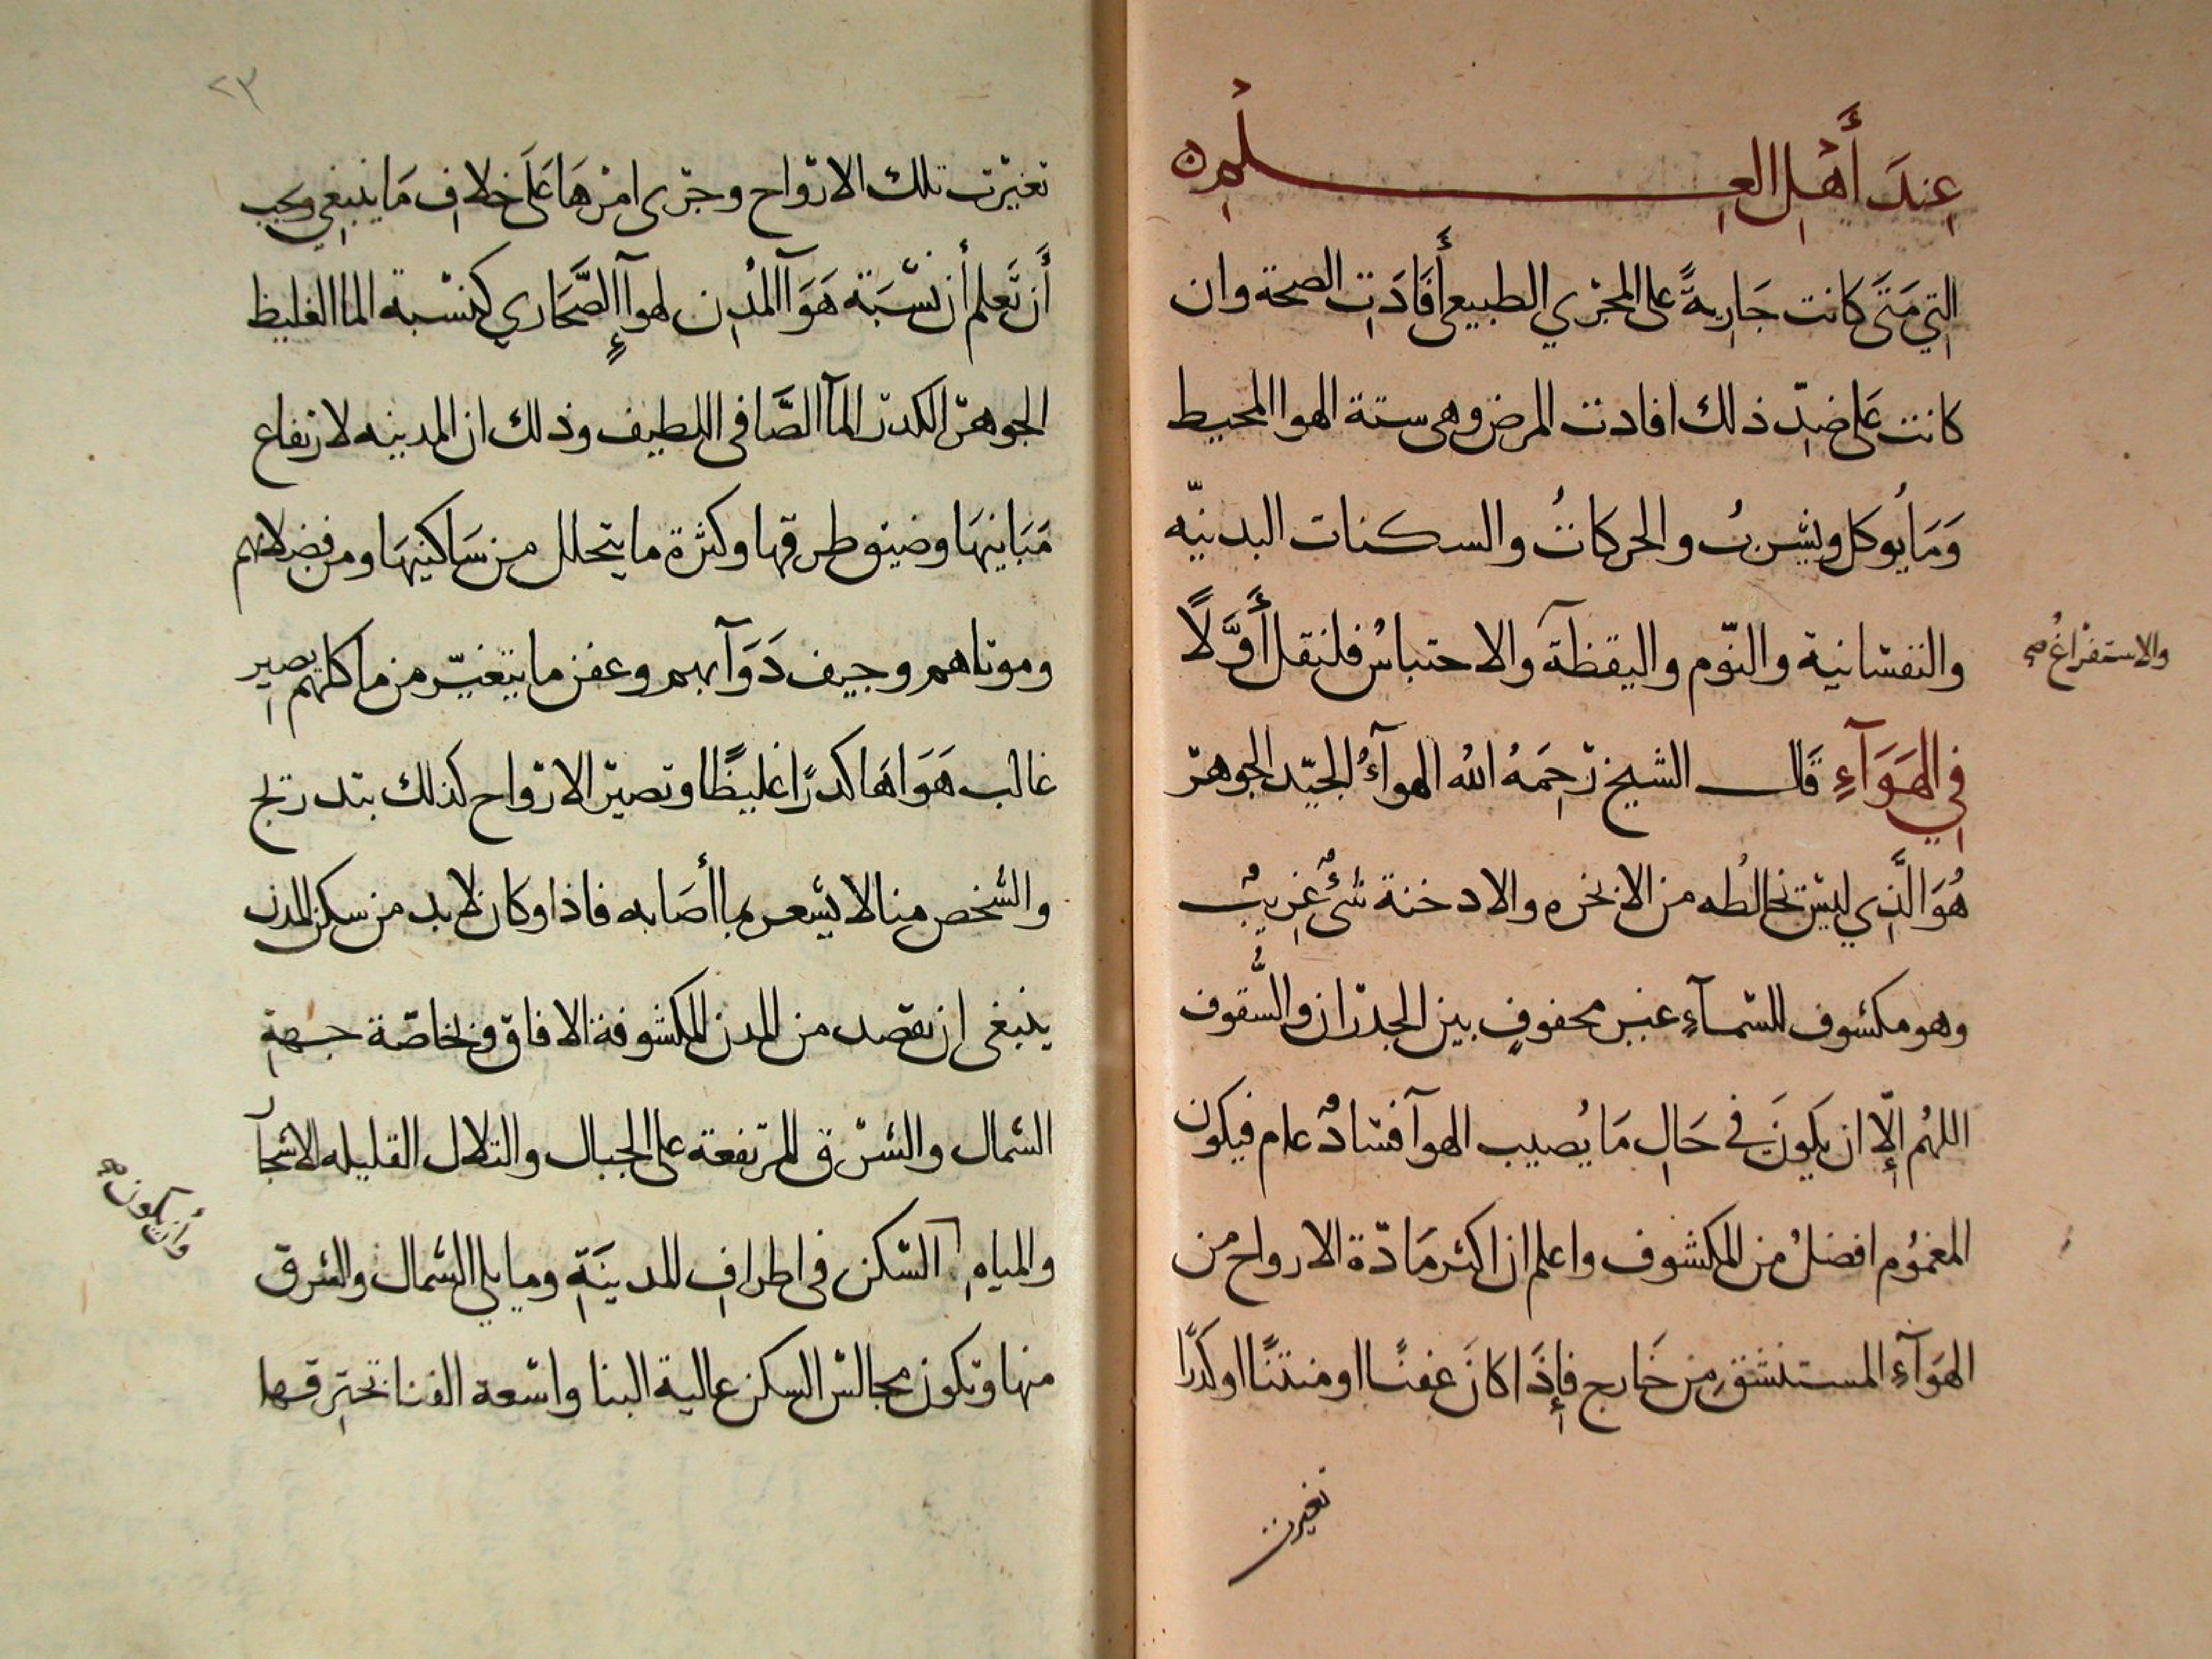 عِندَ أَهْلِ العِلْمِ ه
التِي مَتَى كانت جَارِيةً على المجْرَي الطبيعي أَفَادَتِ الصحة وان
كانت عَلى ضِدّ ذلك افادت المرض وهى ستة الهوا المحيط
وَمَا يُوكل ويشربُ والحركاتُ والسكنات البدنيّه
والنفسَانية والنّوم واليقظة والاحتباسُ فلنقل أَوَّلًا
والاستفراغُ صح
فِي الهَوَآءِ قَال الشيخ رَحِمَهُ الله الهوآءُ الجيّد الجوهر
هُوَ الَّذِي ليس يخالُطه من الابخره والادخنة شئٌ غِريبٌ
وهو مكشوف للسّمآءِ غير محفوفٍ بين الجدران والسُّقوف
اللهُم إِلّا ان يكونَ في حَالِ مَا يُصيب الهوآ فسَادٌ عام فيكون
المغمُوم افضلُ من المكشوف واعلم ان اكثر مَادّة الارواح من
الهَوَآءِ المستنشق من خَارج فإِذَا كانَ عَفنًا او منتنًا او كَدرًا
تغيرت
٢٣
تغيّرت تلك الارواح وجرى امرهَا عَلَى خلافِ مَا ينبغِي ويجب
أَن تَعلم أن نسْبَة هَوَآ المُدِن لهوآءِ الصَّحَارِي كنسْبة الما الغليظ
الجوهر الكدر للمآ الصَّافى اللطيف وذلك ان المدينه لارتفاع
مَبَانيهَا وضيق طرقها وكثرة ما يتحلل من سَاكنيهَا ومن فضِلاتهم
وموتاهم وجيف دَوَآبهم وعفن ما يتغيّر من ماكلهِم يصير
غالب هَوَاهَا كدرًا غليظًا وتصيرّ الارواح كذلك بتدريج
والشخص منا لا يشعر بما أصَابه فاذا وكان لا بد من سكن المدن
ينبغى ان يقصد من المدن المكشوفة الافاق وبخاصّة جهةِ
الشمال والشرق المرتفعة على الجبال والتلال القليله الاشجار
والمياهِ السّكن فى اطرافِ المدينَةِ ومايلي الشمال والشرق
وأن يكون صح
منها وتكون مجالس السكن عالية البنا واسْعة الفنا تخترقها